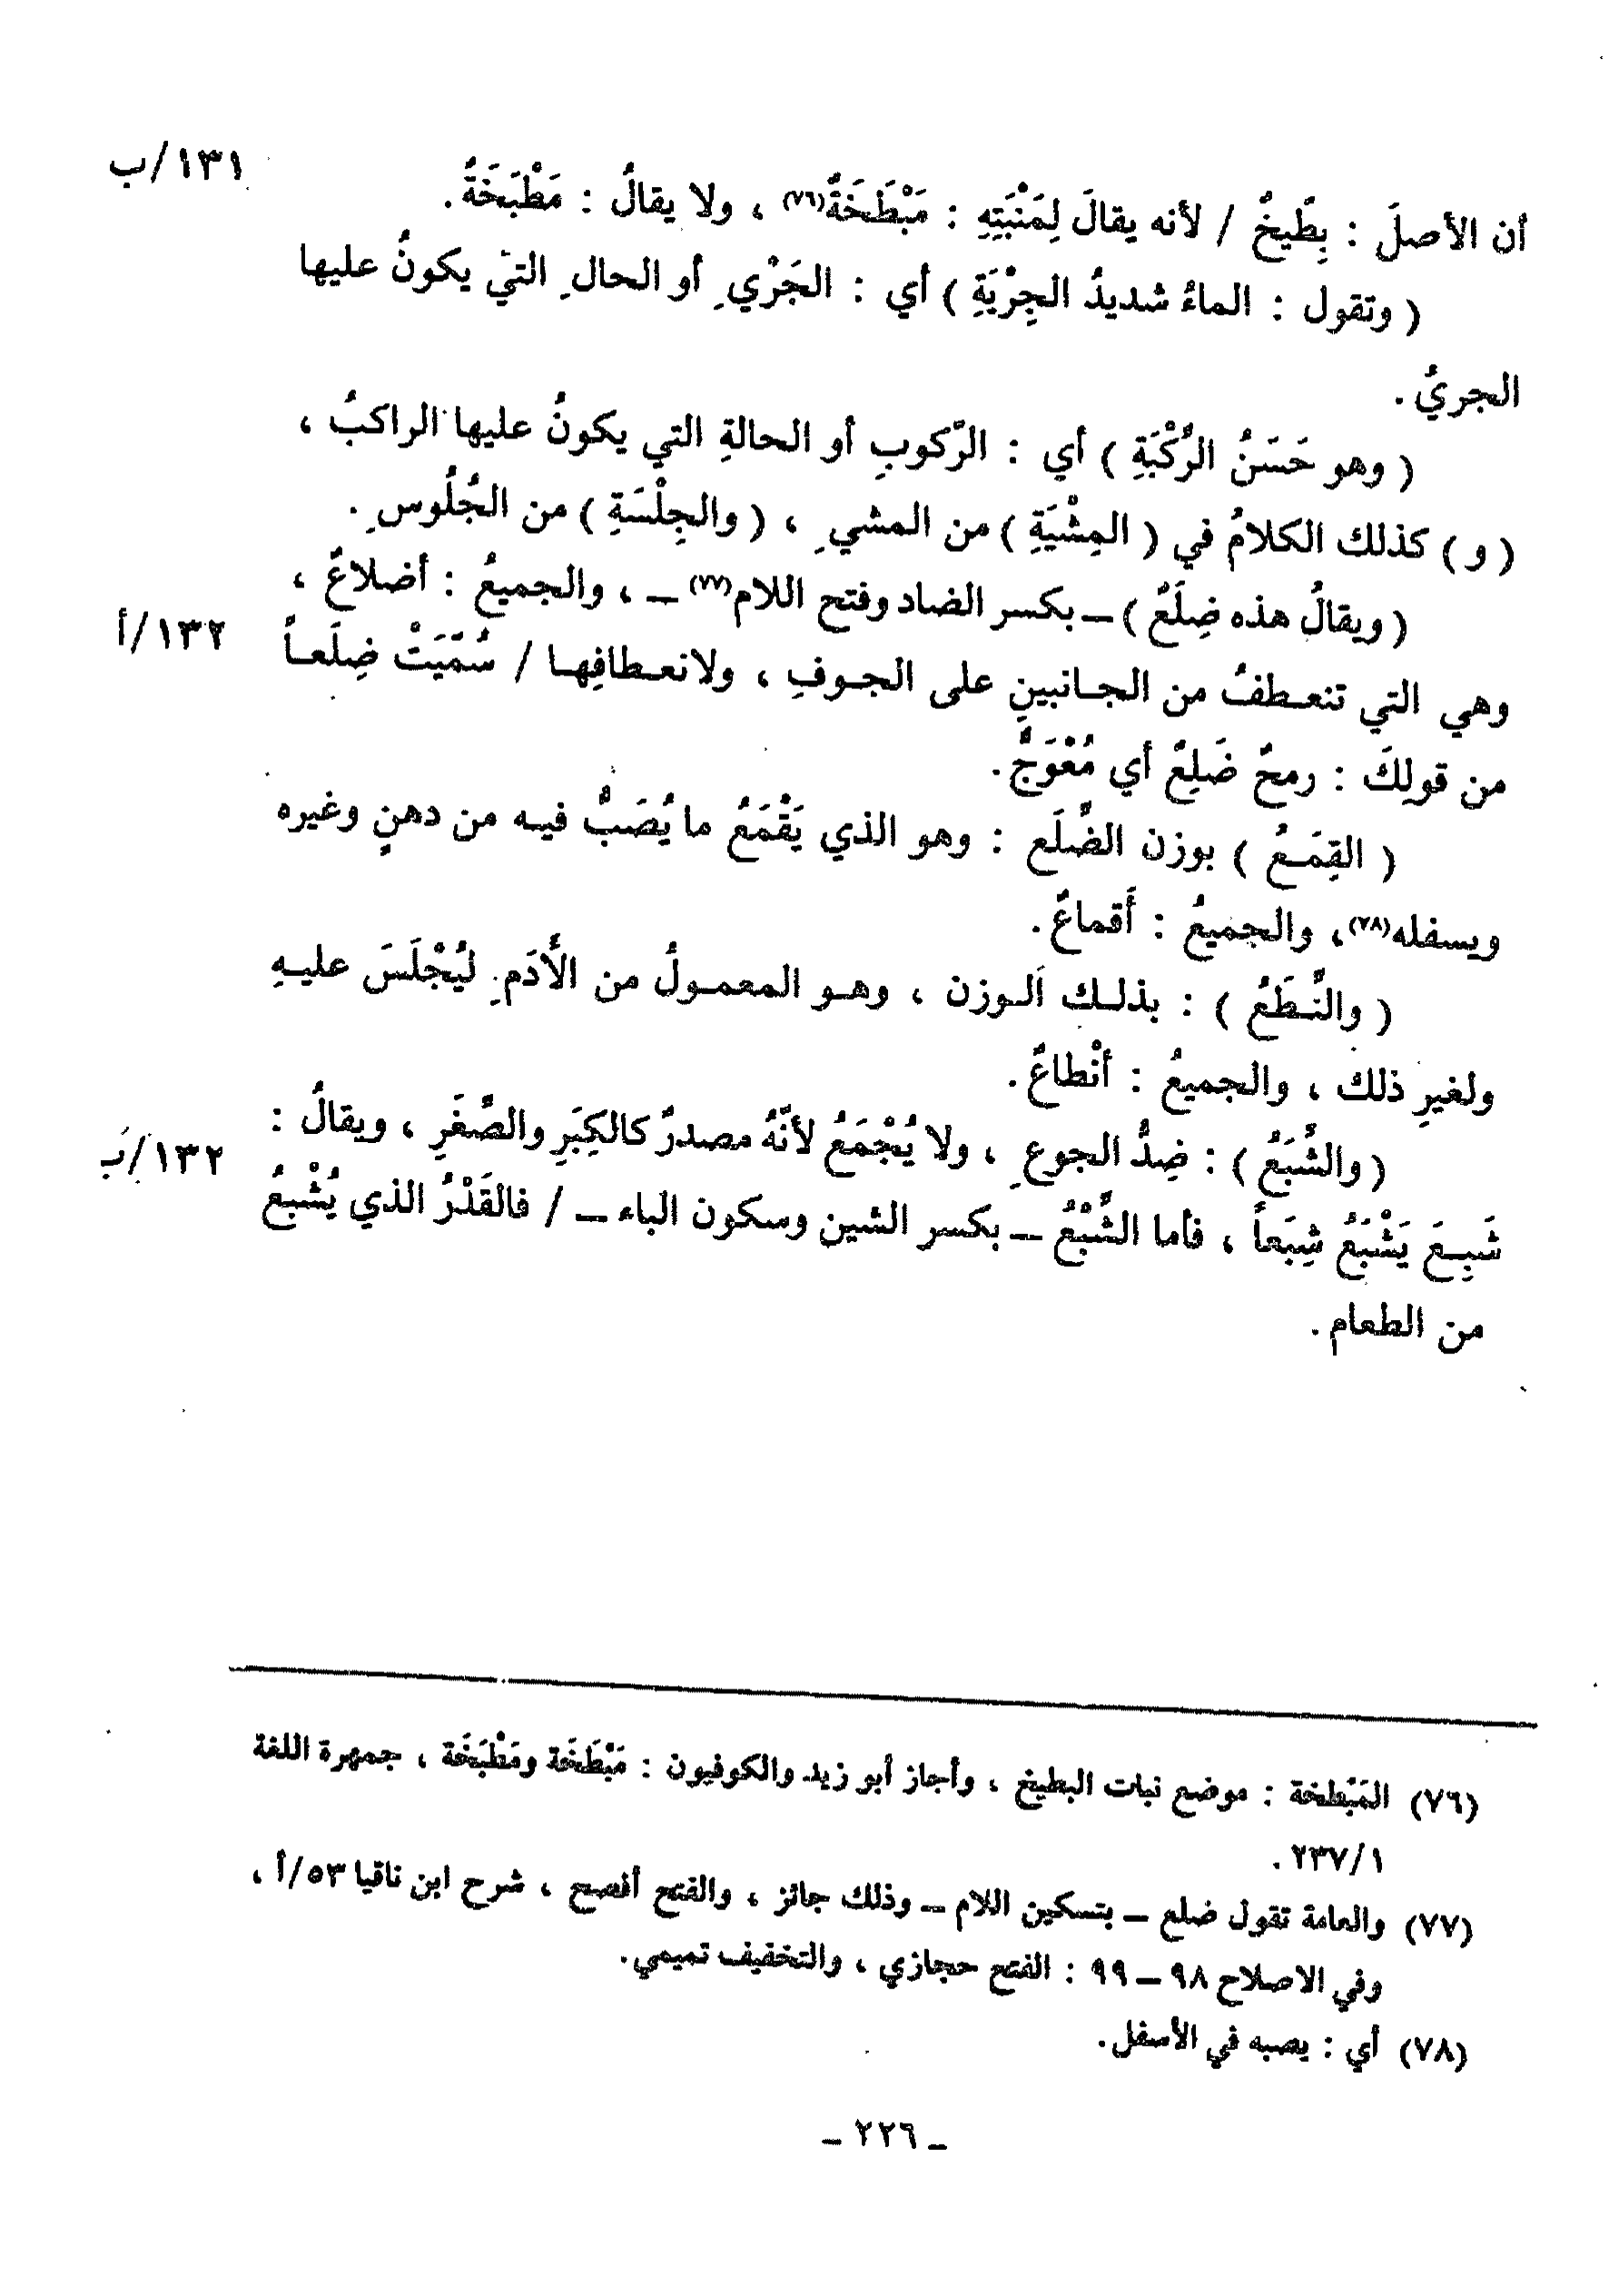 أن الأصلَ : بِطِّيخٌ / لأنه يقالَ لِمَنْبَتِهِ : مَبْطَخَةٌ(٧٦) ، ولا يقالُ : مَطْبَخَةٌ . ١٣١/ب
( وتقول : الماءُ شديدُ الجِرْيَةِ ) أي : الجَرْيِ أو الحالِ التي يكونُ عليها
الجريُ .
( وهو حَسَنُ الرِّكْبَةِ ) أي : الرّكوبِ أو الحالةِ التي يكونُ عليها الراكبُ ،
( و ) كذلك الكلامُ في ( المِشْيَةِ ) من المشيِ ، ( والجِلْسَةِ ) من الجُلُوسِ .
( ويقالُ هذه ضِلَعٌ ) ــ بكسر الضاد وفتح اللام(٧٧) ــ ، والجميعُ : أضلاعٌ ،
وهي التي تنعـطفُ من الجـانبينِ على الجـوفِ ، ولانعـطافِهـا / سُمِّيَتْ ضِلَعـاً ١٣٢/أ
من قولِكَ : رمحٌ ضَلِعٌ أي مُعْوَجٌّ .
( القِمَـعُ ) بوزن الضِّلَع : وهو الذي يَقْمَعُ ما يُصَبُّ فيـه من دهنٍ وغيره
ويسفله(٧٨) ، والجميعُ : أَقماعٌ .
( والنِّـطَعُ ) : بذلـك الـوزن ، وهـو المعمـولُ من الأَدَمِ لِيُجْلَسَ عليـهِ
ولغيرِ ذلك ، والجميعُ : أنْطاعٌ .
( والشِّبَعُ ) : ضِدُّ الجوعِ ، ولا يُجْمَعُ لأنّهُ مصدرٌ كالكِبَرِ والصِّغَرِ ، ويقالُ :
شَبِـعَ يَشْبَعُ شِبَعاً ، فأما الشِّبْعُ ــ بكسر الشين وسكون الباء ــ / فالقَدْرُ الذي يُشْبِعُ ١٣٢/ب
من الطعام .
(٧٦) المَبْطخة : موضع نبات البطيخ ، وأجاز أبو زيد والكوفيون : مَبْطَخَة ومَطْبَخَة ، جمهرة اللغة
٢٣٧/١ .
(٧٧) والعامة تقول ضلع ــ بتسكين اللام ــ وذلك جائز ، والفتح أفصح ، شرح ابن ناقيا ٥٣/أ ،
وفي الاصلاح ٩٨ ــ ٩٩ : الفتح حجازي ، والتخفيف تميمي .
(٧٨) أي : يصبه في الأسفل .
ــ ٢٢٦ ــ